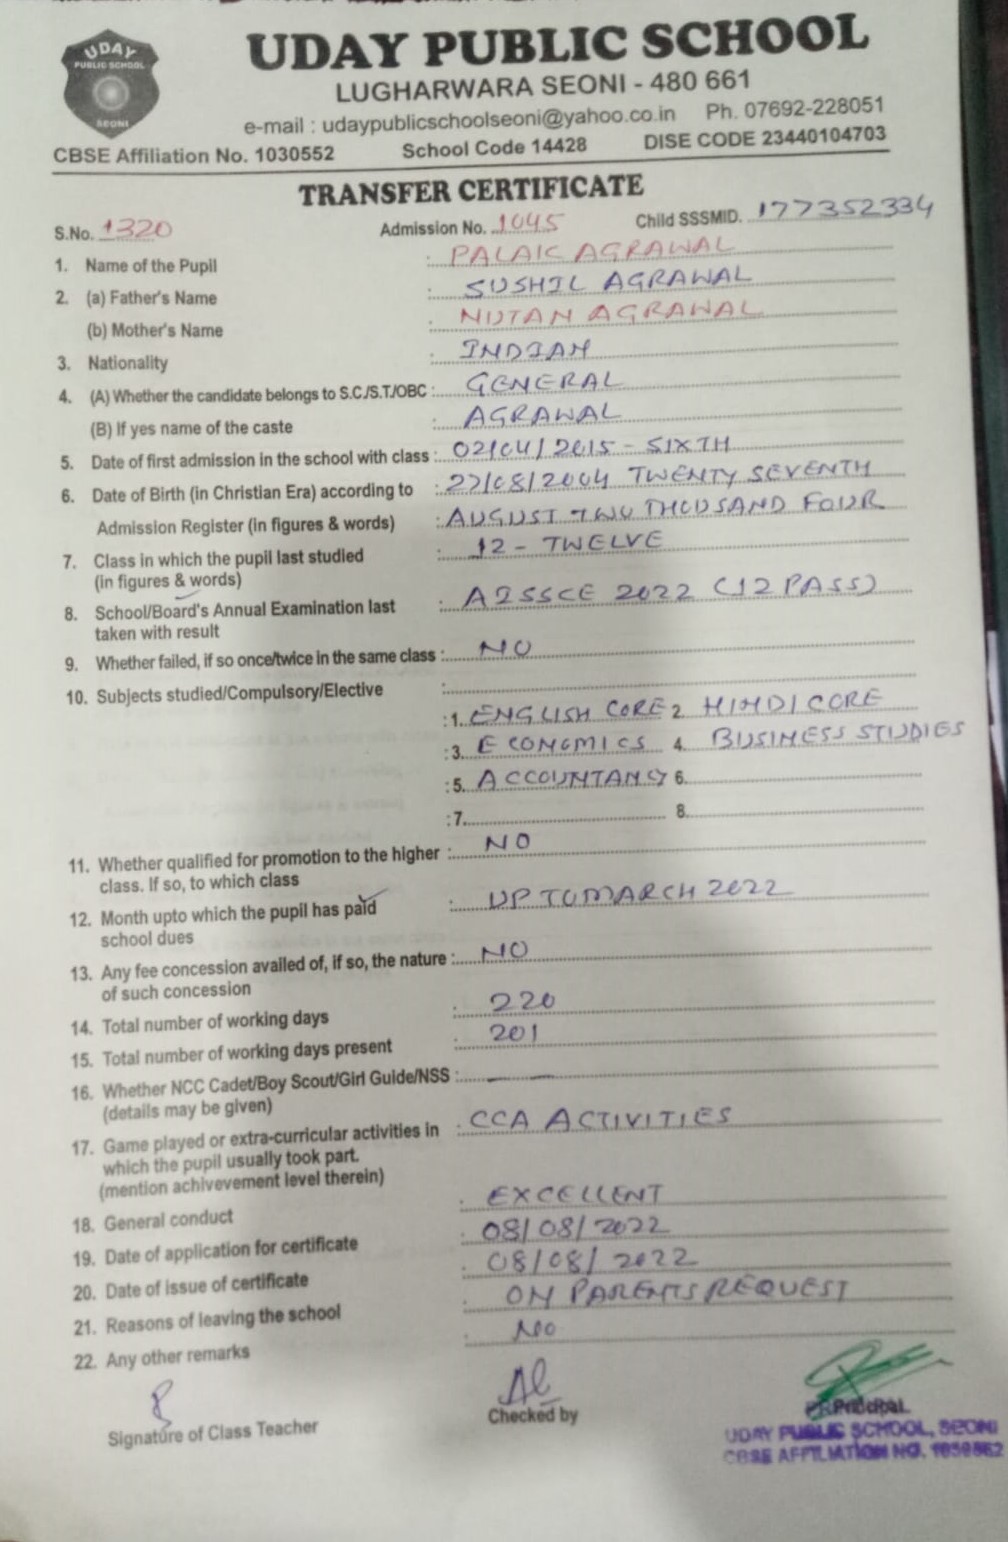 UDAY
PUBLIC SCHOOL
SEONI
UDAY PUBLIC SCHOOL
LUGHARWARA SEONI - 480 661
e-mail : udaypublicschoolseoni@yahoo.co.in Ph. 07692-228051
CBSE Affiliation No. 1030552 School Code 14428 DISE CODE 23440104703
TRANSFER CERTIFICATE
S.No. 1320 Admission No. 1045 Child SSSMID. 177352334
1. Name of the Pupil : PALAK AGRAWAL
2. (a) Father's Name : SUSHIL AGRAWAL
(b) Mother's Name : NUTAN AGRAWAL
3. Nationality : INDIAN
4. (A) Whether the candidate belongs to S.C./S.T./OBC : GENERAL
(B) If yes name of the caste : AGRAWAL
5. Date of first admission in the school with class : 02/04/2015 - SIXTH
6. Date of Birth (in Christian Era) according to : 27/08/2004 TWENTY SEVENTH
Admission Register (in figures & words) : AUGUST TWO THOUSAND FOUR
7. Class in which the pupil last studied : 12 - TWELVE
(in figures & words)
8. School/Board's Annual Examination last : AISSCE 2022 (12 PASS)
taken with result
9. Whether failed, if so once/twice in the same class : NO
10. Subjects studied/Compulsory/Elective :
:1. ENGLISH CORE 2. HINDI CORE
:3. ECONOMICS 4. BUSINESS STUDIES
:5. ACCOUNTANCY 6.
:7. 8.
11. Whether qualified for promotion to the higher : NO
class. If so, to which class
12. Month upto which the pupil has paid : UP TO MARCH 2022
school dues
13. Any fee concession availed of, if so, the nature : NO
of such concession
14. Total number of working days : 220
15. Total number of working days present : 201
16. Whether NCC Cadet/Boy Scout/Girl Guide/NSS : —
(details may be given)
17. Game played or extra-curricular activities in : CCA ACTIVITIES
which the pupil usually took part.
(mention achivevement level therein)
18. General conduct : EXCELLENT
19. Date of application for certificate : 08/08/2022
20. Date of issue of certificate : 08/08/2022
21. Reasons of leaving the school : ON PARENTS REQUEST
22. Any other remarks : NO
Signature of Class Teacher Checked by Principal
UDAY PUBLIC SCHOOL, SEONI
CBSE AFFILIATION NO.